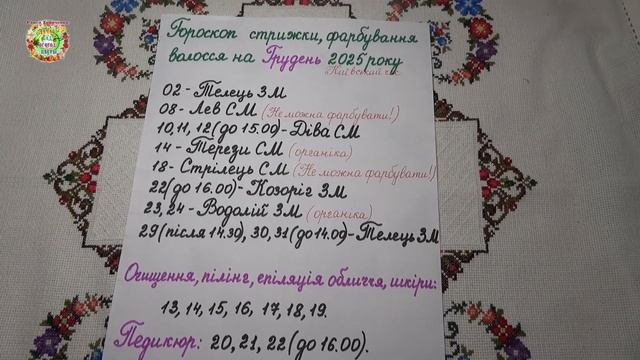 Гороскоп стрижки, фарбування
волосся на Грудень 2025 року
Київський час
02 - Телець ЗМ
08 - Лев СМ (Не можна фарбувати!)
10, 11, 12 (до 15.00) - Діва СМ
14 - Терези СМ (органіка)
18 - Стрілець СМ (Не можна фарбувати!)
22 (до 16.00) - Козоріг ЗМ
23, 24 - Водолій ЗМ (органіка)
29 (після 14.30), 30, 31 (до 14.00) - Телець ЗМ
Очищення, пілінг, епіляція обличчя, шкіри:
13, 14, 15, 16, 17, 18, 19.
Педикюр: 20, 21, 22 (до 16.00).